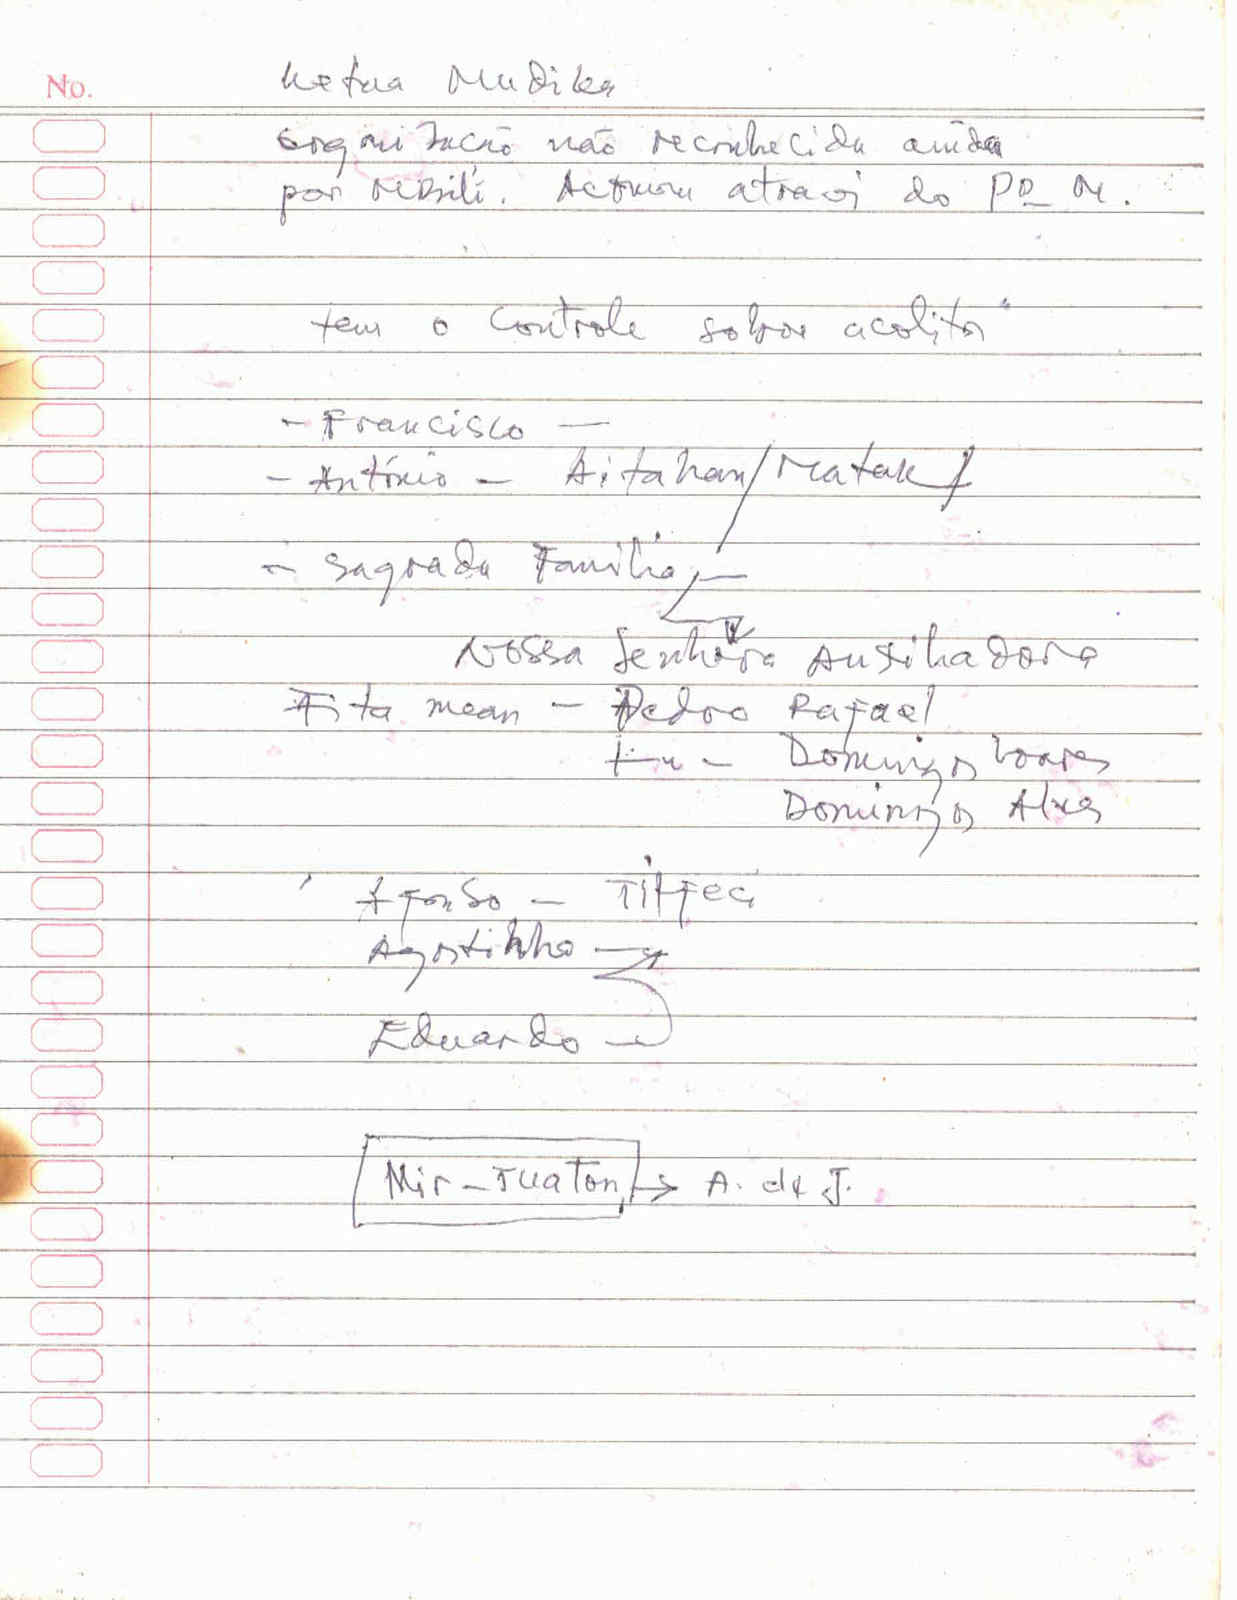 No.
Ketua Mudika
Organização não reconhecida ainda
por através do Pe M.
tem o controle sobre acolitos
- Francisco -
- António - Aitahan/Matak
- Sagrada Familia -
Nossa Senhora Auxiliadora
Fita mean - Pedro Rafael
Domingos Soares
Domingos Alves
Afonso -
Agostinho
Eduardo
Mir-Tuaton → A. de J.